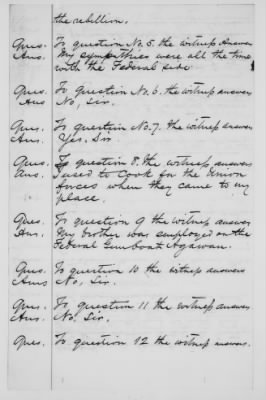 the rebellion.
Ques. To question No. 5. the witness answers
Ans. My sympathies were all the time
with the Federal side
Ques. To question No. 6. the witness answers
Ans No, Sir.
Ques. To question No. 7. the witness answers
Ans. Yes, Sir
Ques. To question 8. the witness answers
Ans. I used to Cook for the Union
forces when they came to my
place.
Ques. To question 9 the witness answers
Ans. My brother was employed on the
Federal Gunboat Agawan.
Ques. To question 10 the witness answers
Ans No, Sir.
Ques. To question 11 the witness answers
Ans. No. Sir.
Ques. To question 12 the witness answers.